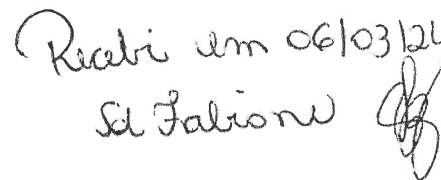 Recebi em 06/03/24
Sd Fabiane